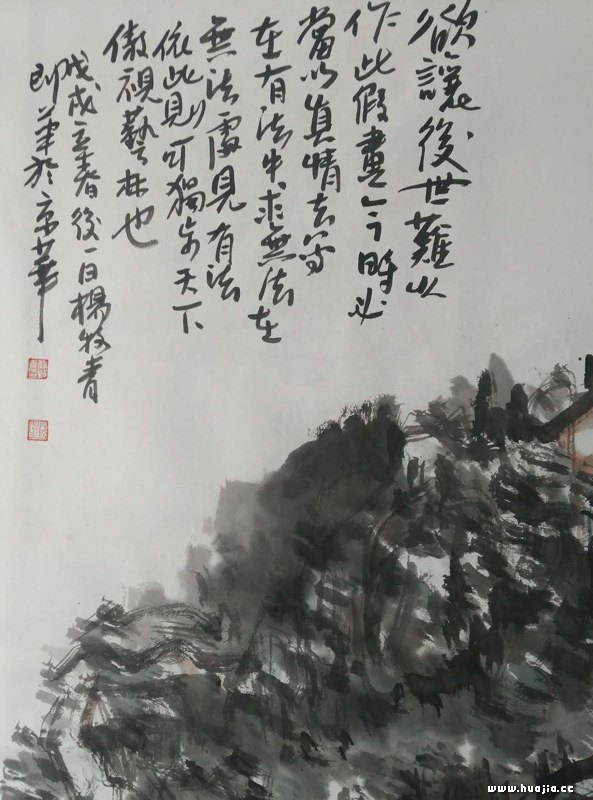 欲讓後世難以
作此假畫今時必
當以真情去寫
在有法中求無法在
無法處見有法
依此見可獨步天下
傲視藝林也
戊戌立春後一日楊牧青
即筆於京華
www.huajia.cc